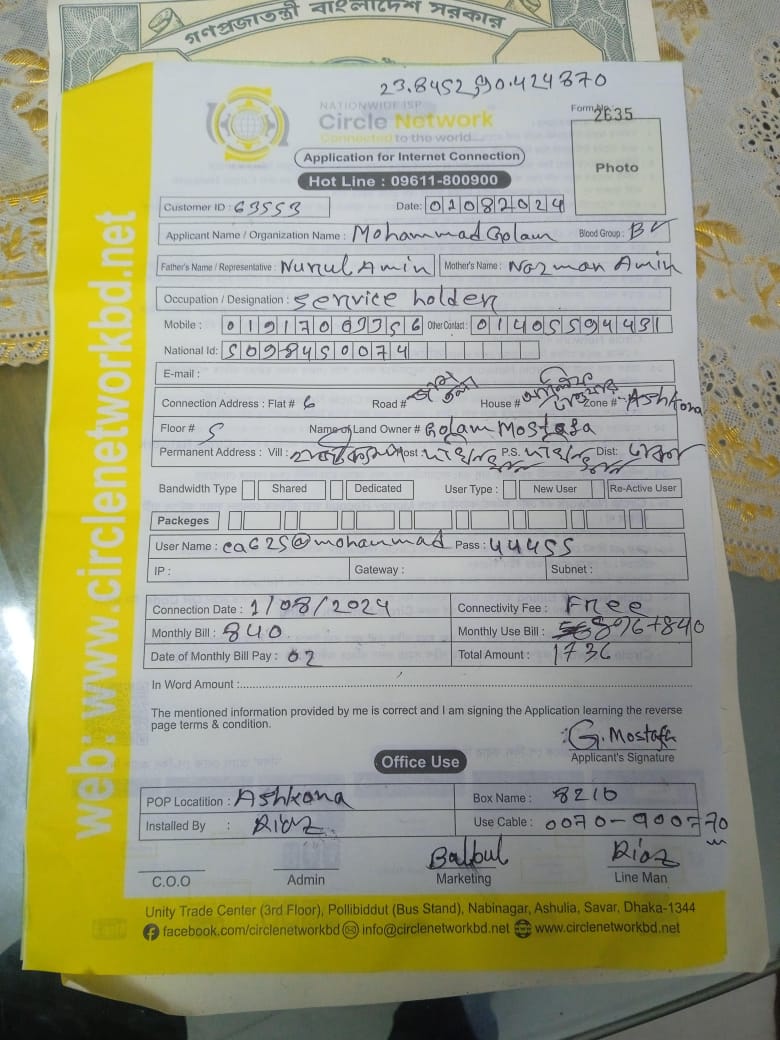 গণপ্রজাতন্ত্রী বাংলাদেশ সরকার
23.8452,90.424870
NATIONWIDE ISP
Circle Network
Connected to the world...
Form No : 2635
Application for Internet Connection
Photo
Hot Line : 09611-800900
Customer ID : 63553 Date: 01082024
Applicant Name / Organization Name : Mohammad Golam Blood Group :
Father's Name / Representative : Nurul Amin Mother's Name : Nazman Amin
Occupation / Designation : Service holder
Mobile : Other Contact : 01405594431
National Id: 5098450074
E-mail :
Connection Address : Flat # 6 Road # House # Zone # Ashkona
Floor # 5 Name of Land Owner # Golam Mostafa
Permanent Address : Vill : Post : P.S. Dist: ঢাকা
Bandwidth Type Shared Dedicated User Type : New User Re-Active User
Packeges
User Name : ca625@mohammad Pass : 44455
IP : Gateway : Subnet :
Connection Date : 1/08/2024 Connectivity Fee : Free
Monthly Bill : 840 Monthly Use Bill : 896+840
Date of Monthly Bill Pay : 02 Total Amount : 1736
In Word Amount :
The mentioned information provided by me is correct and I am signing the Application learning the reverse
page terms & condition.
G. Mostafa
Applicant's Signature
Office Use
POP Locatition : Ashkona Box Name : 8216
Installed By : Riaz Use Cable : 0070-900770
Balbul Riaz
C.O.O Admin Marketing Line Man
Unity Trade Center (3rd Floor), Pollibiddut (Bus Stand), Nabinagar, Ashulia, Savar, Dhaka-1344
facebook.com/circlenetworkbd info@circlenetworkbd.net www.circlenetworkbd.net
web: www.circlenetworkbd.net